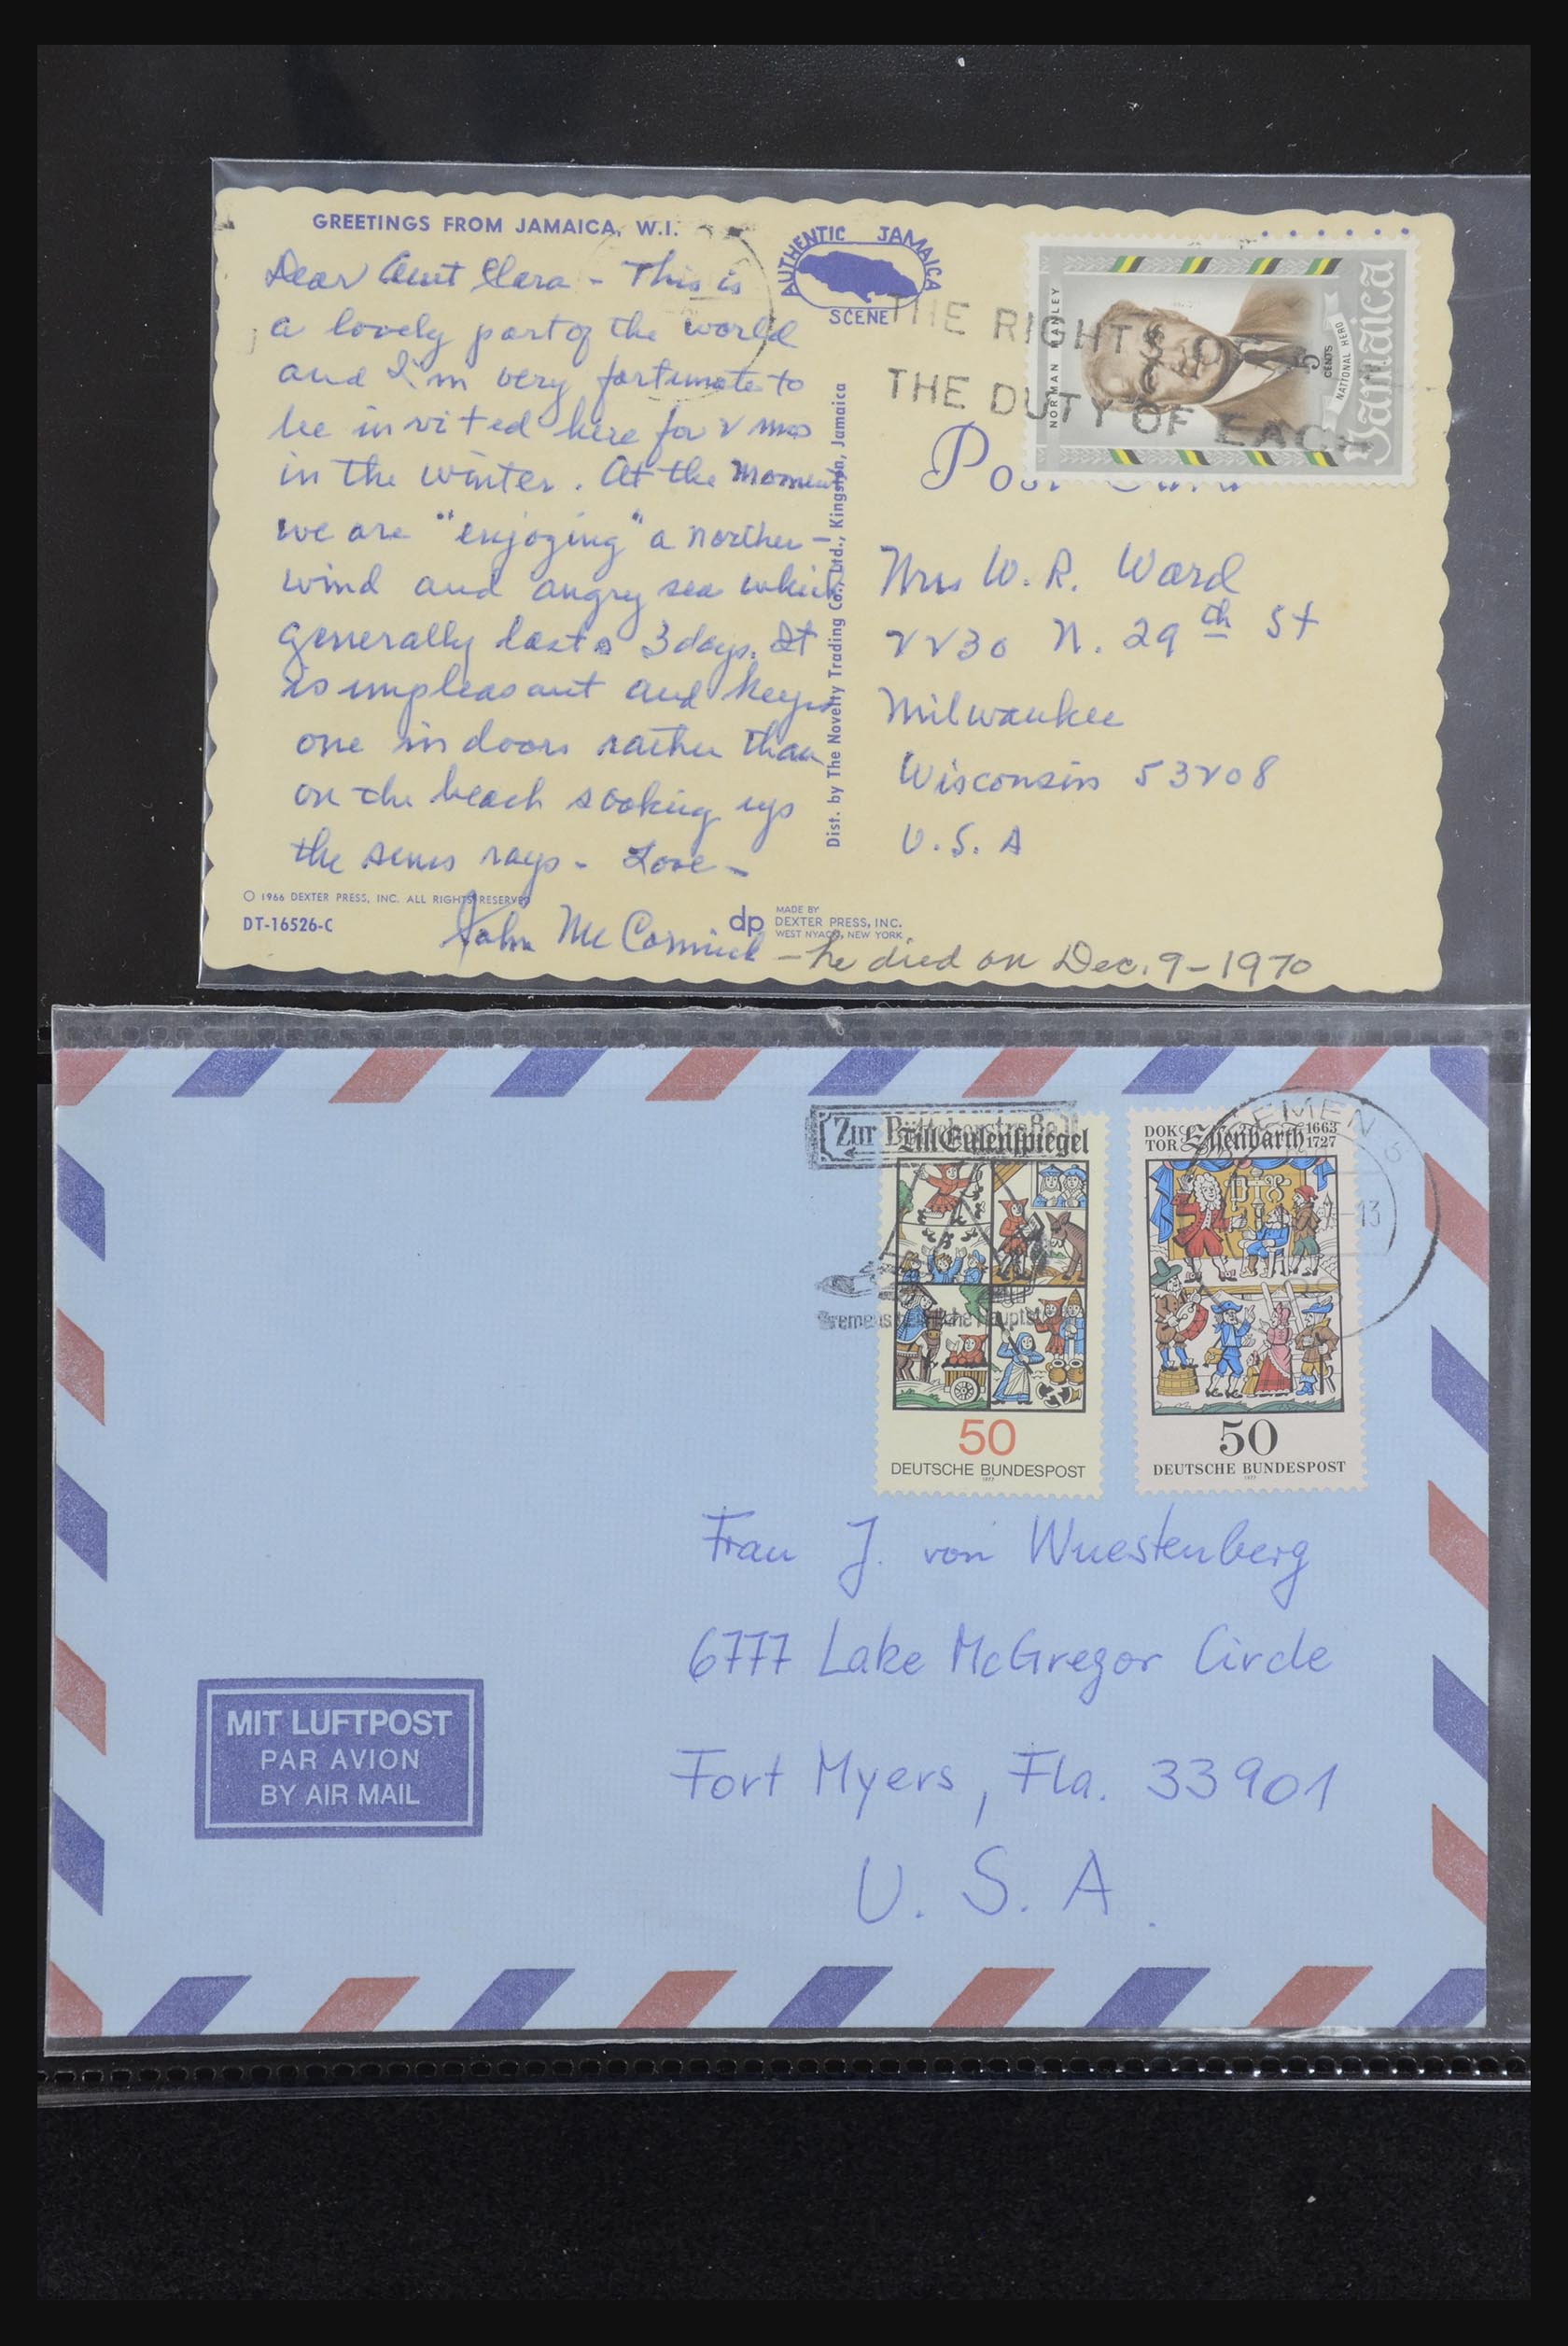 GREETINGS FROM JAMAICA, W.I.
Dear Aunt Clara - This is
a lovely part of the world
and I'm very fortunate to
be invited here for 2 mos
in the winter. At the moment
we are "enjoying" a norther -
wind and angry sea which
generally lasts 3 days. It
is unpleasant and keeps
one indoors rather than
on the beach soaking up
the suns rays - Love -
John McCormick - he died on Dec. 9-1970
© 1966 DEXTER PRESS, INC. ALL RIGHTS RESERVED
DT-16526-C
dp
MADE BY
DEXTER PRESS, INC.
WEST NYACK, NEW YORK
Dist. by The Novelty Trading Co., Ltd., Kingston, Jamaica
AUTHENTIC JAMAICA
SCENE
THE RIGHTS
THE DUTY OF EACH
NORMAN MANLEY
5
CENTS
NATIONAL HERO
Jamaica
Post Card
Mrs W. R. Ward
2230 N. 29th St
Milwaukee
Wisconsin 53208
U.S.A
Zur Böttcherstraße
Bremens heimliche Hauptstraße
Till Eulenspiegel
50
DEUTSCHE BUNDESPOST
1977
DOK
TOR
Eisenbarth
1663
1727
50
DEUTSCHE BUNDESPOST
1977
BREMEN 5
-13
Frau J. von Wuestenberg
6777 Lake McGregor Circle
Fort Myers, Fla. 33901
U. S. A.
MIT LUFTPOST
PAR AVION
BY AIR MAIL